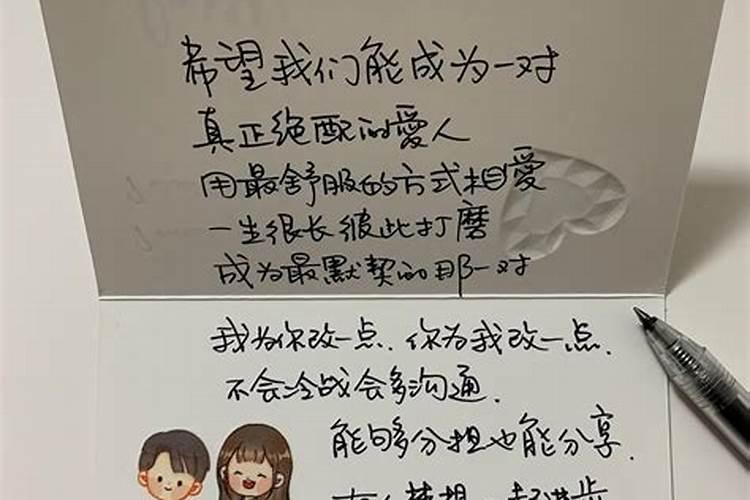 希望我们能成为一对
真正绝配的愛人
用最舒服的方式相愛
一生很长彼此打磨
成为最默契的那一对
我为你改一点.你为我改一点.
不会冷战会多沟通.
能够分担也能分享.
梦想一起进步